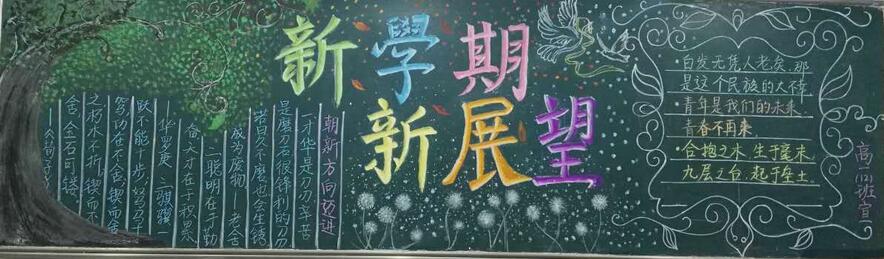 新學期
新展望
朝新方向迈进
一才华是刀刃辛苦
是磨刀石很锋利的刀刃
若日久不磨也会生锈
成为废物—老舍
二聪明在于勤
奋天才在于积累
—华罗庚 三骐骥一
跃不能十步驽马十
驾功在不舍锲而舍
之朽木不折锲而不
舍金石可镂
—《荀子》
白发无凭人老矣,那
是这个民族的大不幸
青年是我们的未来
青春不再来
合抱之木,生于毫末
九层之台,起于垒土
班宣